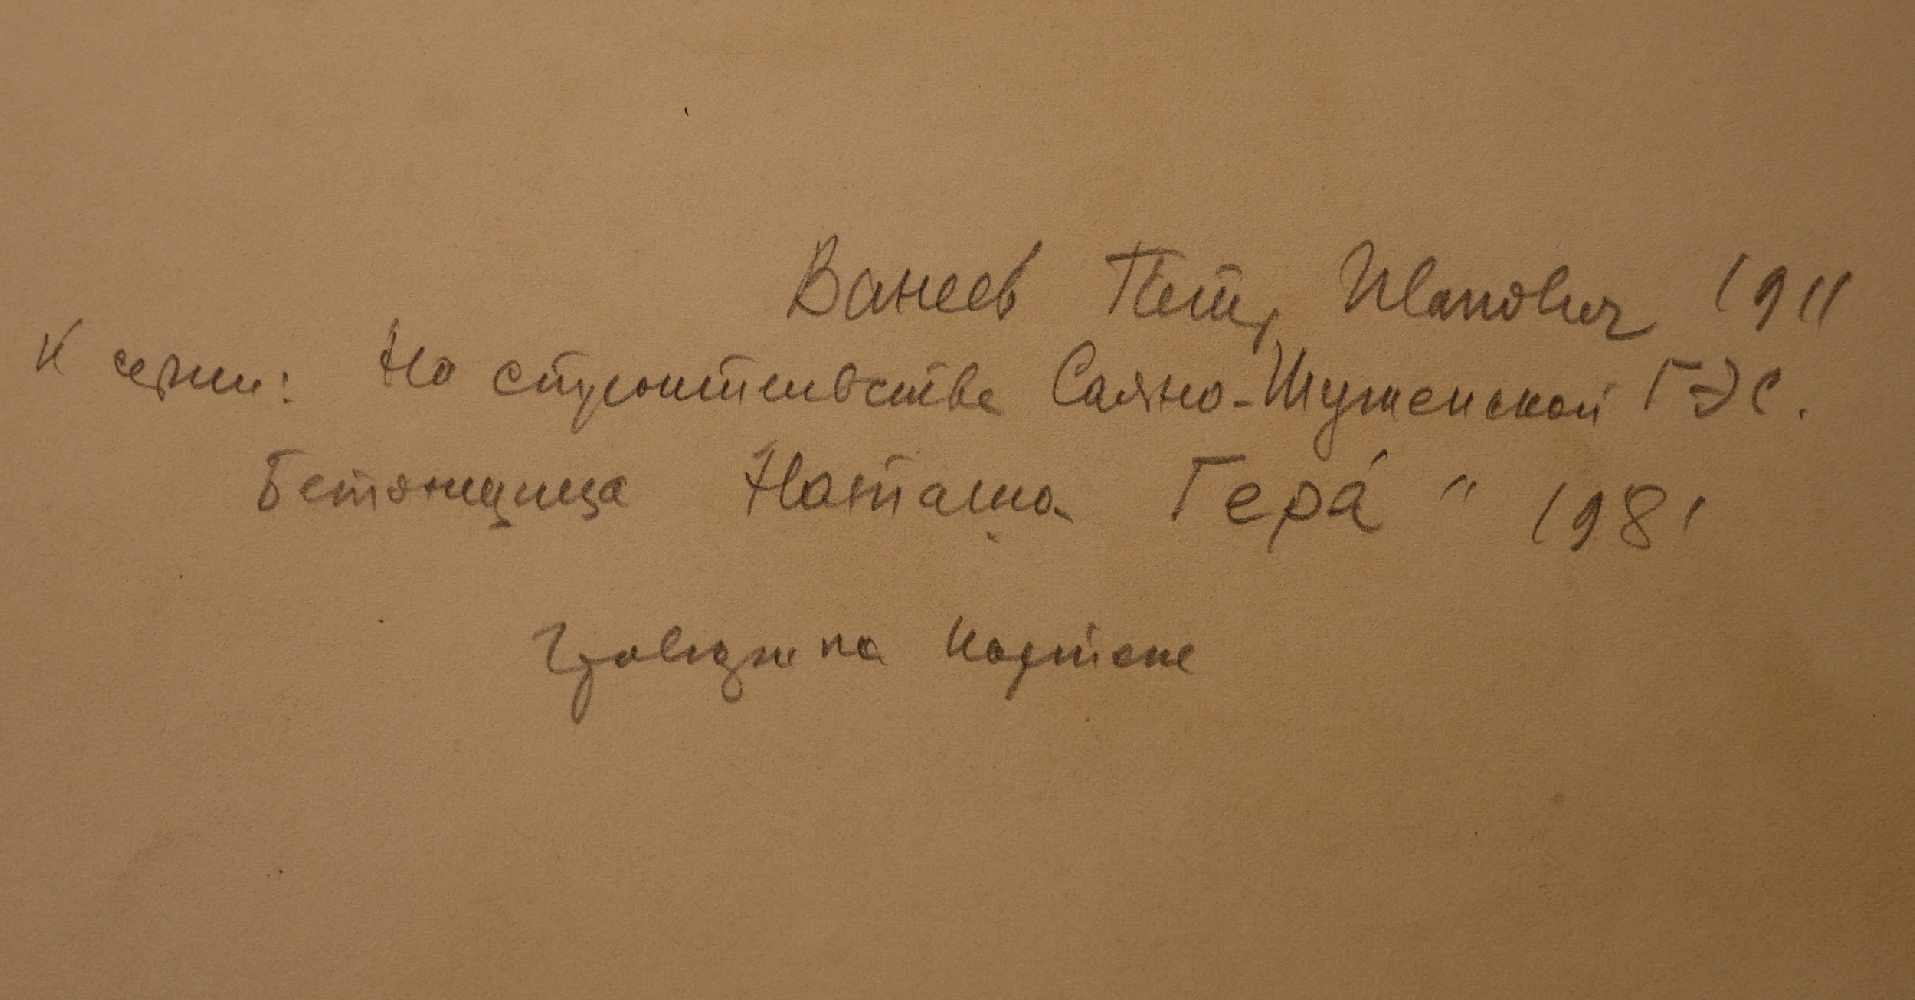 Ванеев Петр Иванович 1911
К серии: На строительстве Саяно-Шушенской ГЭС.
Бетонщица Наташа Гера́ " 1981
на картоне